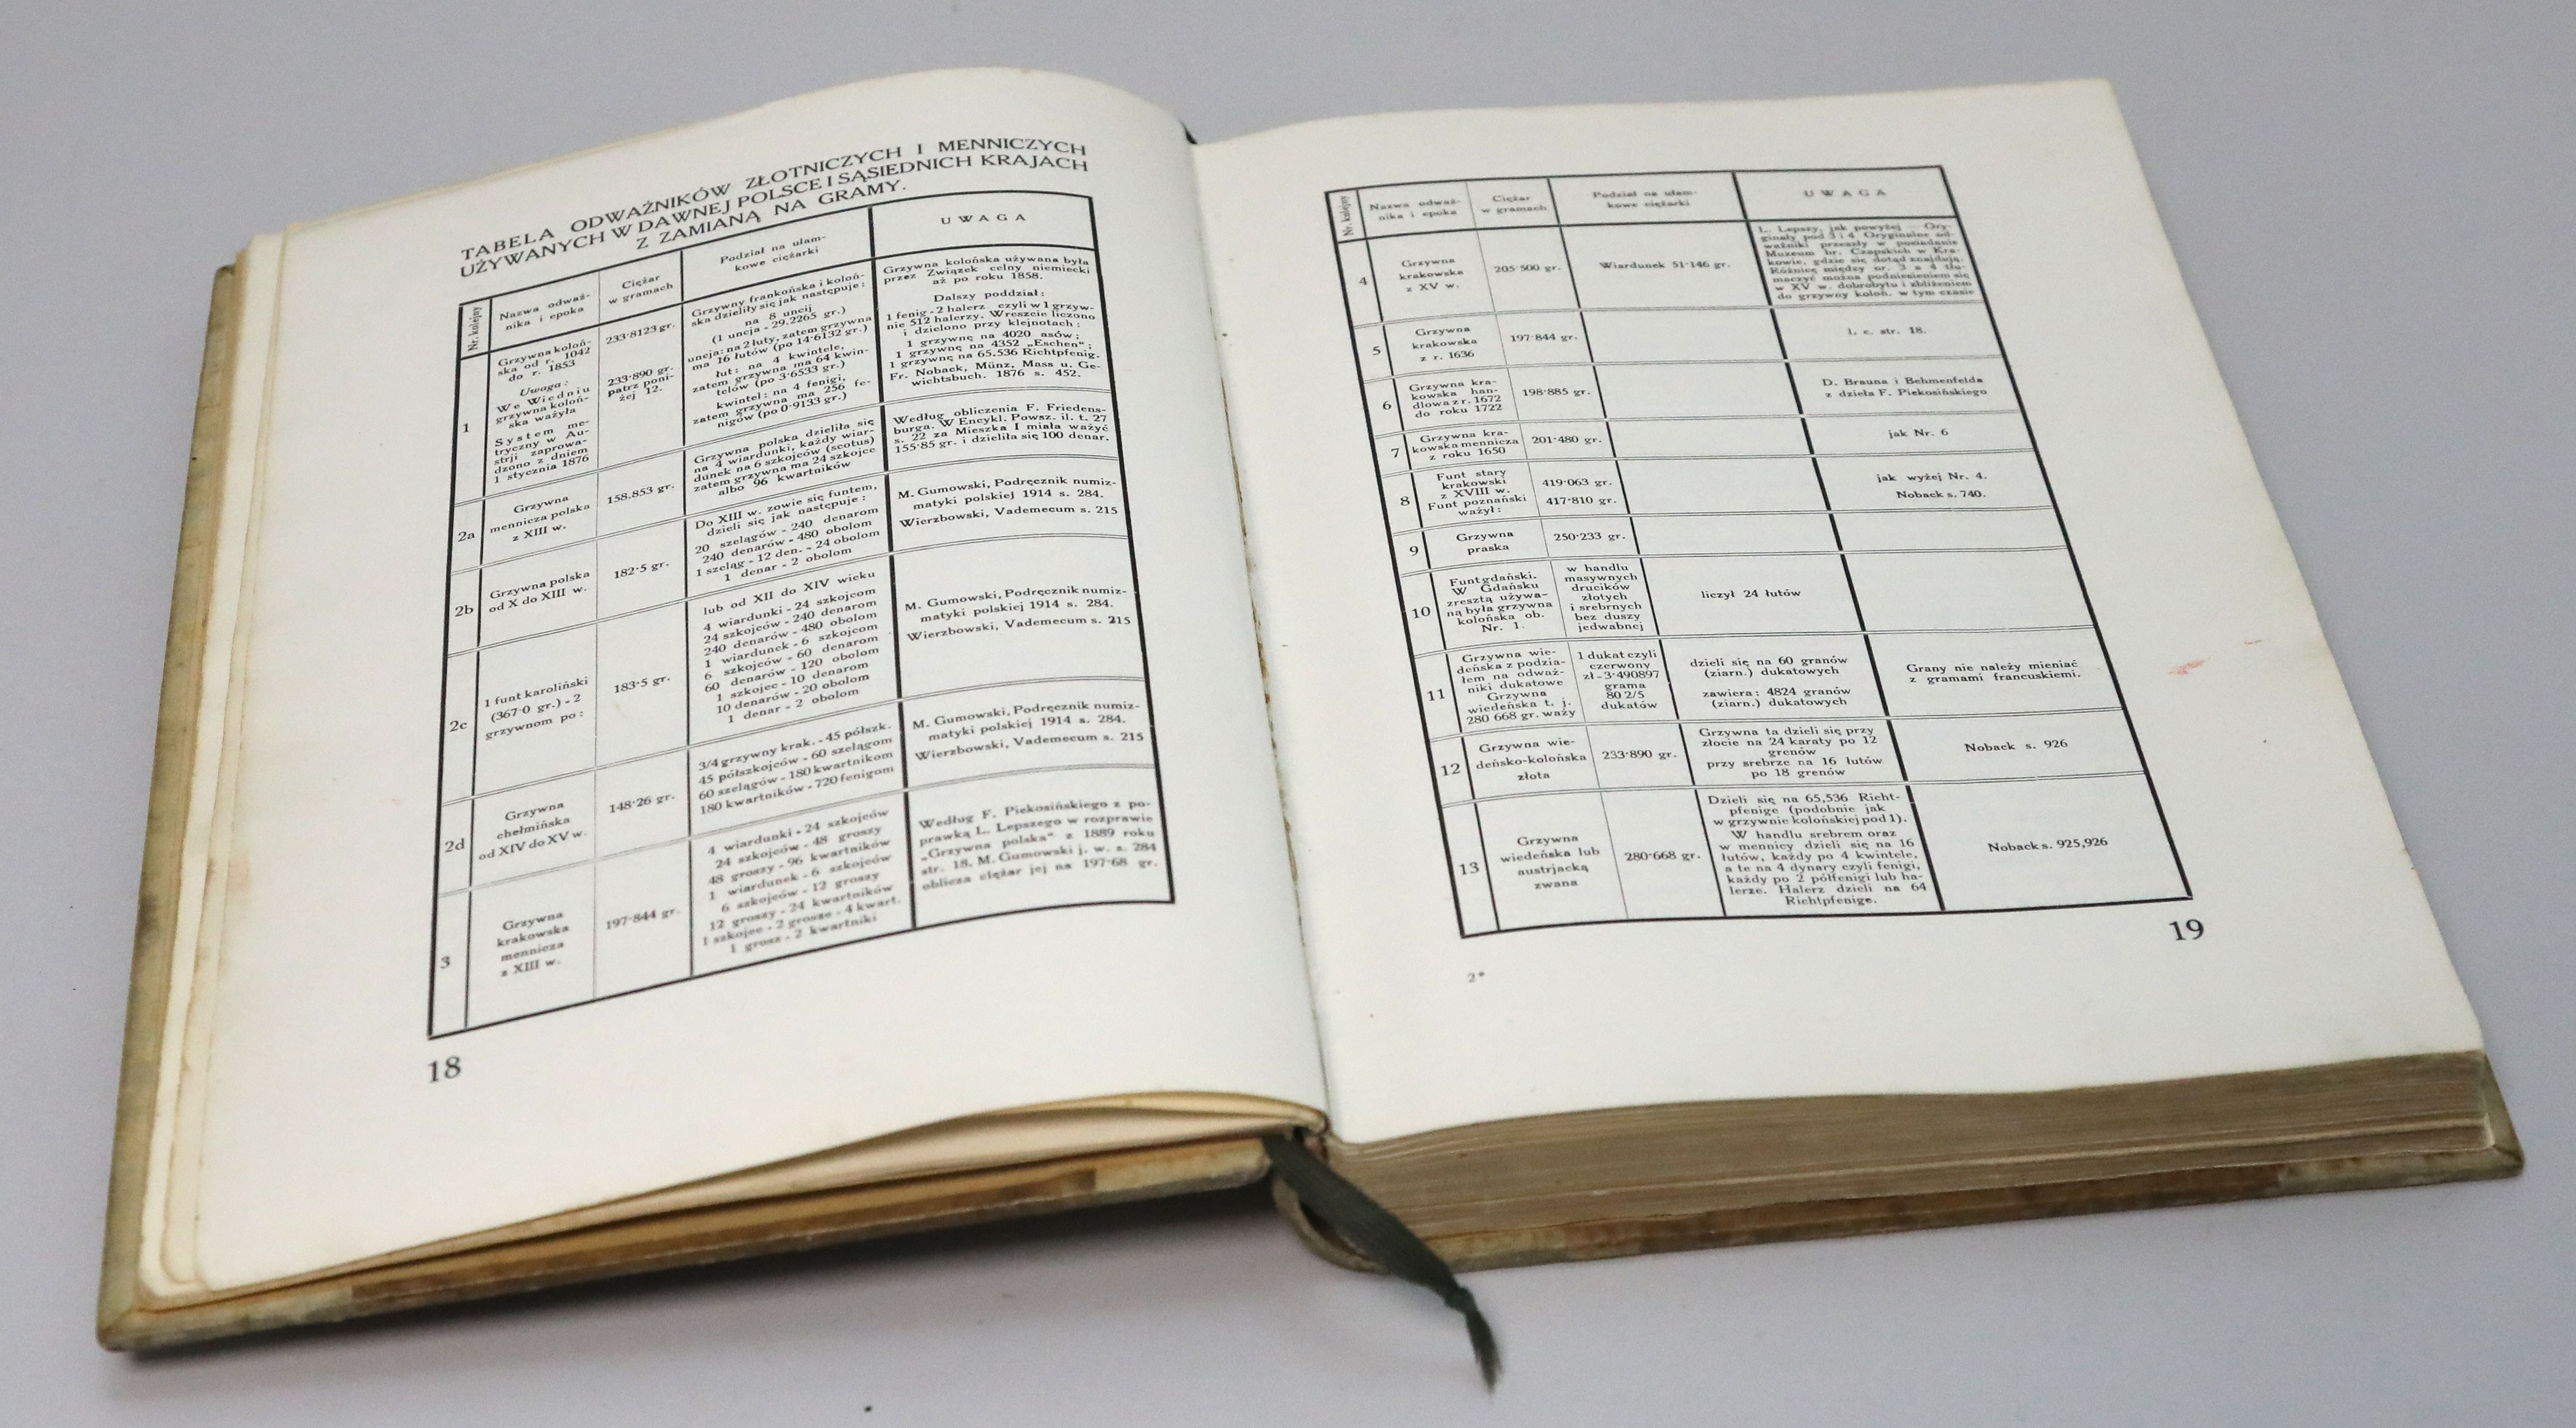 TABELA ODWAŻNIKÓW ZŁOTNICZYCH I MENNICZYCH
UŻYWANYCH W DAWNEJ POLSCE I SĄSIEDNICH KRAJACH
Z ZAMIANĄ NA GRAMY.
Nr. kolejny
Nazwa odważ-
nika i epoka
Ciężar
w gramach
Podział na ułam-
kowe ciężarki
UWAGA
1
Grzywna koloń-
ska od r. 1042
do r. 1853
Uwaga:
We Wiedniu
grzywna koloń-
ska ważyła
System me-
tryczny w Au-
strji zaprowa-
dzono z dniem
1 stycznia 1876
233·8123 gr.
233·890 gr.
patrz poni-
żej 12.
Grzywny frankońska i koloń-
ska dzieliły się jak następuje:
na 8 uncij
(1 uncja - 29.2265 gr.)
uncja: na 2 łuty, zatem grzywna
ma 16 łutów (po 14·6132 gr.)
łut: na 4 kwintele,
zatem grzywna ma 64 kwin-
telów (po 3·6533 gr.)
kwintel: na 4 fenigi,
zatem grzywna ma 256 fe-
nigów (po 0·9133 gr.)
Grzywna kolońska używana była
przez Związek celny niemiecki
aż po roku 1858.
Dalszy poddział:
1 fenig - 2 halerz czyli w 1 grzyw-
nie 512 halerzy. Wreszcie liczono
i dzielono przy klejnotach:
1 grzywnę na 4020 asów;
1 grzywnę na 4352 „Eschen“;
1 grzywnę na 65.536 Richtpfenig.
Fr. Noback, Münz, Mass u. Ge-
wichtsbuch. 1876 s. 452.
2a
Grzywna
mennicza polska
z XIII w.
158.853 gr.
Grzywna polska dzieliła się
na 4 wiardunki, każdy wiar-
dunek na 6 szkojców (scotus)
zatem grzywna ma 24 szkojce
albo 96 kwartników
Według obliczenia F. Friedens-
burga. W Encykl. Powsz. il. t. 27
s. 22 za Mieszka I miała ważyć
155·85 gr. i dzieliła się 100 denar.
2b
Grzywna polska
od X do XIII w.
182·5 gr.
Do XIII w. zowie się funtem,
dzieli się jak następuje:
20 szelągów - 240 denarom
240 denarów - 480 obolom
1 szeląg - 12 den. - 24 obolom
1 denar - 2 obolom
M. Gumowski, Podręcznik numiz-
matyki polskiej 1914 s. 284.
Wierzbowski, Vademecum s. 215
2c
1 funt karoliński
(367·0 gr.) - 2
grzywnom po:
183·5 gr.
lub od XII do XIV wieku
4 wiardunki - 24 szkojcom
24 szkojców - 240 denarom
240 denarów - 480 obolom
1 wiardunek - 6 szkojcom
6 szkojców - 60 denarom
60 denarów - 120 obolom
1 szkojec - 10 denarom
10 denarów - 20 obolom
1 denar - 2 obolom
M. Gumowski, Podręcznik numiz-
matyki polskiej 1914 s. 284.
Wierzbowski, Vademecum s. 215
2d
Grzywna
chełmińska
od XIV do XV w.
148·26 gr.
3/4 grzywny krak. - 45 półszk.
45 półszkojców - 60 szelągom
60 szelągów - 180 kwartnikom
180 kwartników - 720 fenigom
M. Gumowski, Podręcznik numiz-
matyki polskiej 1914 s. 284.
Wierzbowski, Vademecum s. 215
3
Grzywna
krakowska
mennicza
z XIII w.
197·844 gr.
4 wiardunki - 24 szkojców
24 szkojców - 48 groszy
48 groszy - 96 kwartników
1 wiardunek - 6 szkojców
6 szkojców - 12 groszy
12 groszy - 24 kwartników
1 szkojec - 2 grosze - 4 kwart.
1 grosz - 2 kwartniki
Według F. Piekosińskiego z po-
prawką L. Lepszego w rozprawie
„Grzywna polska“ z 1889 roku
str. 18. M. Gumowski j. w. s. 284
oblicza ciężar jej na 197·68 gr.
18
Nr. kolejny
Nazwa odważ-
nika i epoka
Ciężar
w gramach
Podział na ułam-
kowe ciężarki
UWAGA
4
Grzywna
krakowska
z XV w.
205·500 gr.
Wiardunek 51·146 gr.
L. Lepszy, jak powyżej — Ory-
ginały pod 3 i 4 Oryginalne od-
ważniki przeszły w posiadanie
Muzeum hr. Czapskich w Kra-
kowie, gdzie się dotąd znajdują.
Różnicę między nr. 3 a 4 tłu-
maczyć można podniesieniem się
w XV w. dobrobytu i zbliżeniem
do grzywny koloń. w tym czasie
5
Grzywna
krakowska
z r. 1636
197·844 gr.
l. c. str. 18.
6
Grzywna kra-
kowska han-
dlowa z r. 1672
do roku 1722
198·885 gr.
D. Brauna i Behmenfelda
z dzieła F. Piekosińskiego
7
Grzywna kra-
kowska mennicza
z roku 1650
201·480 gr.
jak Nr. 6
8
Funt stary
krakowski
z XVIII w.
Funt poznański
ważył:
419·063 gr.
417·810 gr.
jak wyżej Nr. 4.
Noback s. 740.
9
Grzywna
praska
250·233 gr.
10
Funt gdański.
W Gdańsku
zresztą używa-
ną była grzywna
kolońska ob.
Nr. 1.
w handlu
masywnych
drucików
złotych
i srebrnych
bez duszy
jedwabnej
liczył 24 łutów
11
Grzywna wie-
deńska z podzia-
łem na odważ-
niki dukatowe
Grzywna
wiedeńska t. j.
280 668 gr. waży
1 dukat czyli
czerwony
zł - 3·490897
grama
80 2/5
dukatów
dzieli się na 60 granów
(ziarn.) dukatowych
zawiera: 4824 granów
(ziarn.) dukatowych
Grany nie należy mieniać
z gramami francuskiemi.
12
Grzywna wie-
deńsko-kolońska
złota
233·890 gr.
Grzywna ta dzieli się przy
złocie na 24 karaty po 12
grenów
przy srebrze na 16 łutów
po 18 grenów
Noback s. 926
13
Grzywna
wiedeńska lub
austrjacką
zwana
280·668 gr.
Dzieli się na 65,536 Richt-
pfenige (podobnie jak
w grzywnie kolońskiej pod 1).
W handlu srebrem oraz
w mennicy dzieli się na 16
łutów, każdy po 4 kwintele,
a te na 4 dynary czyli fenigi,
każdy po 2 półfenigi lub ha-
lerze. Halerz dzieli na 64
Richtpfenige.
Noback s. 925,926
2*
19